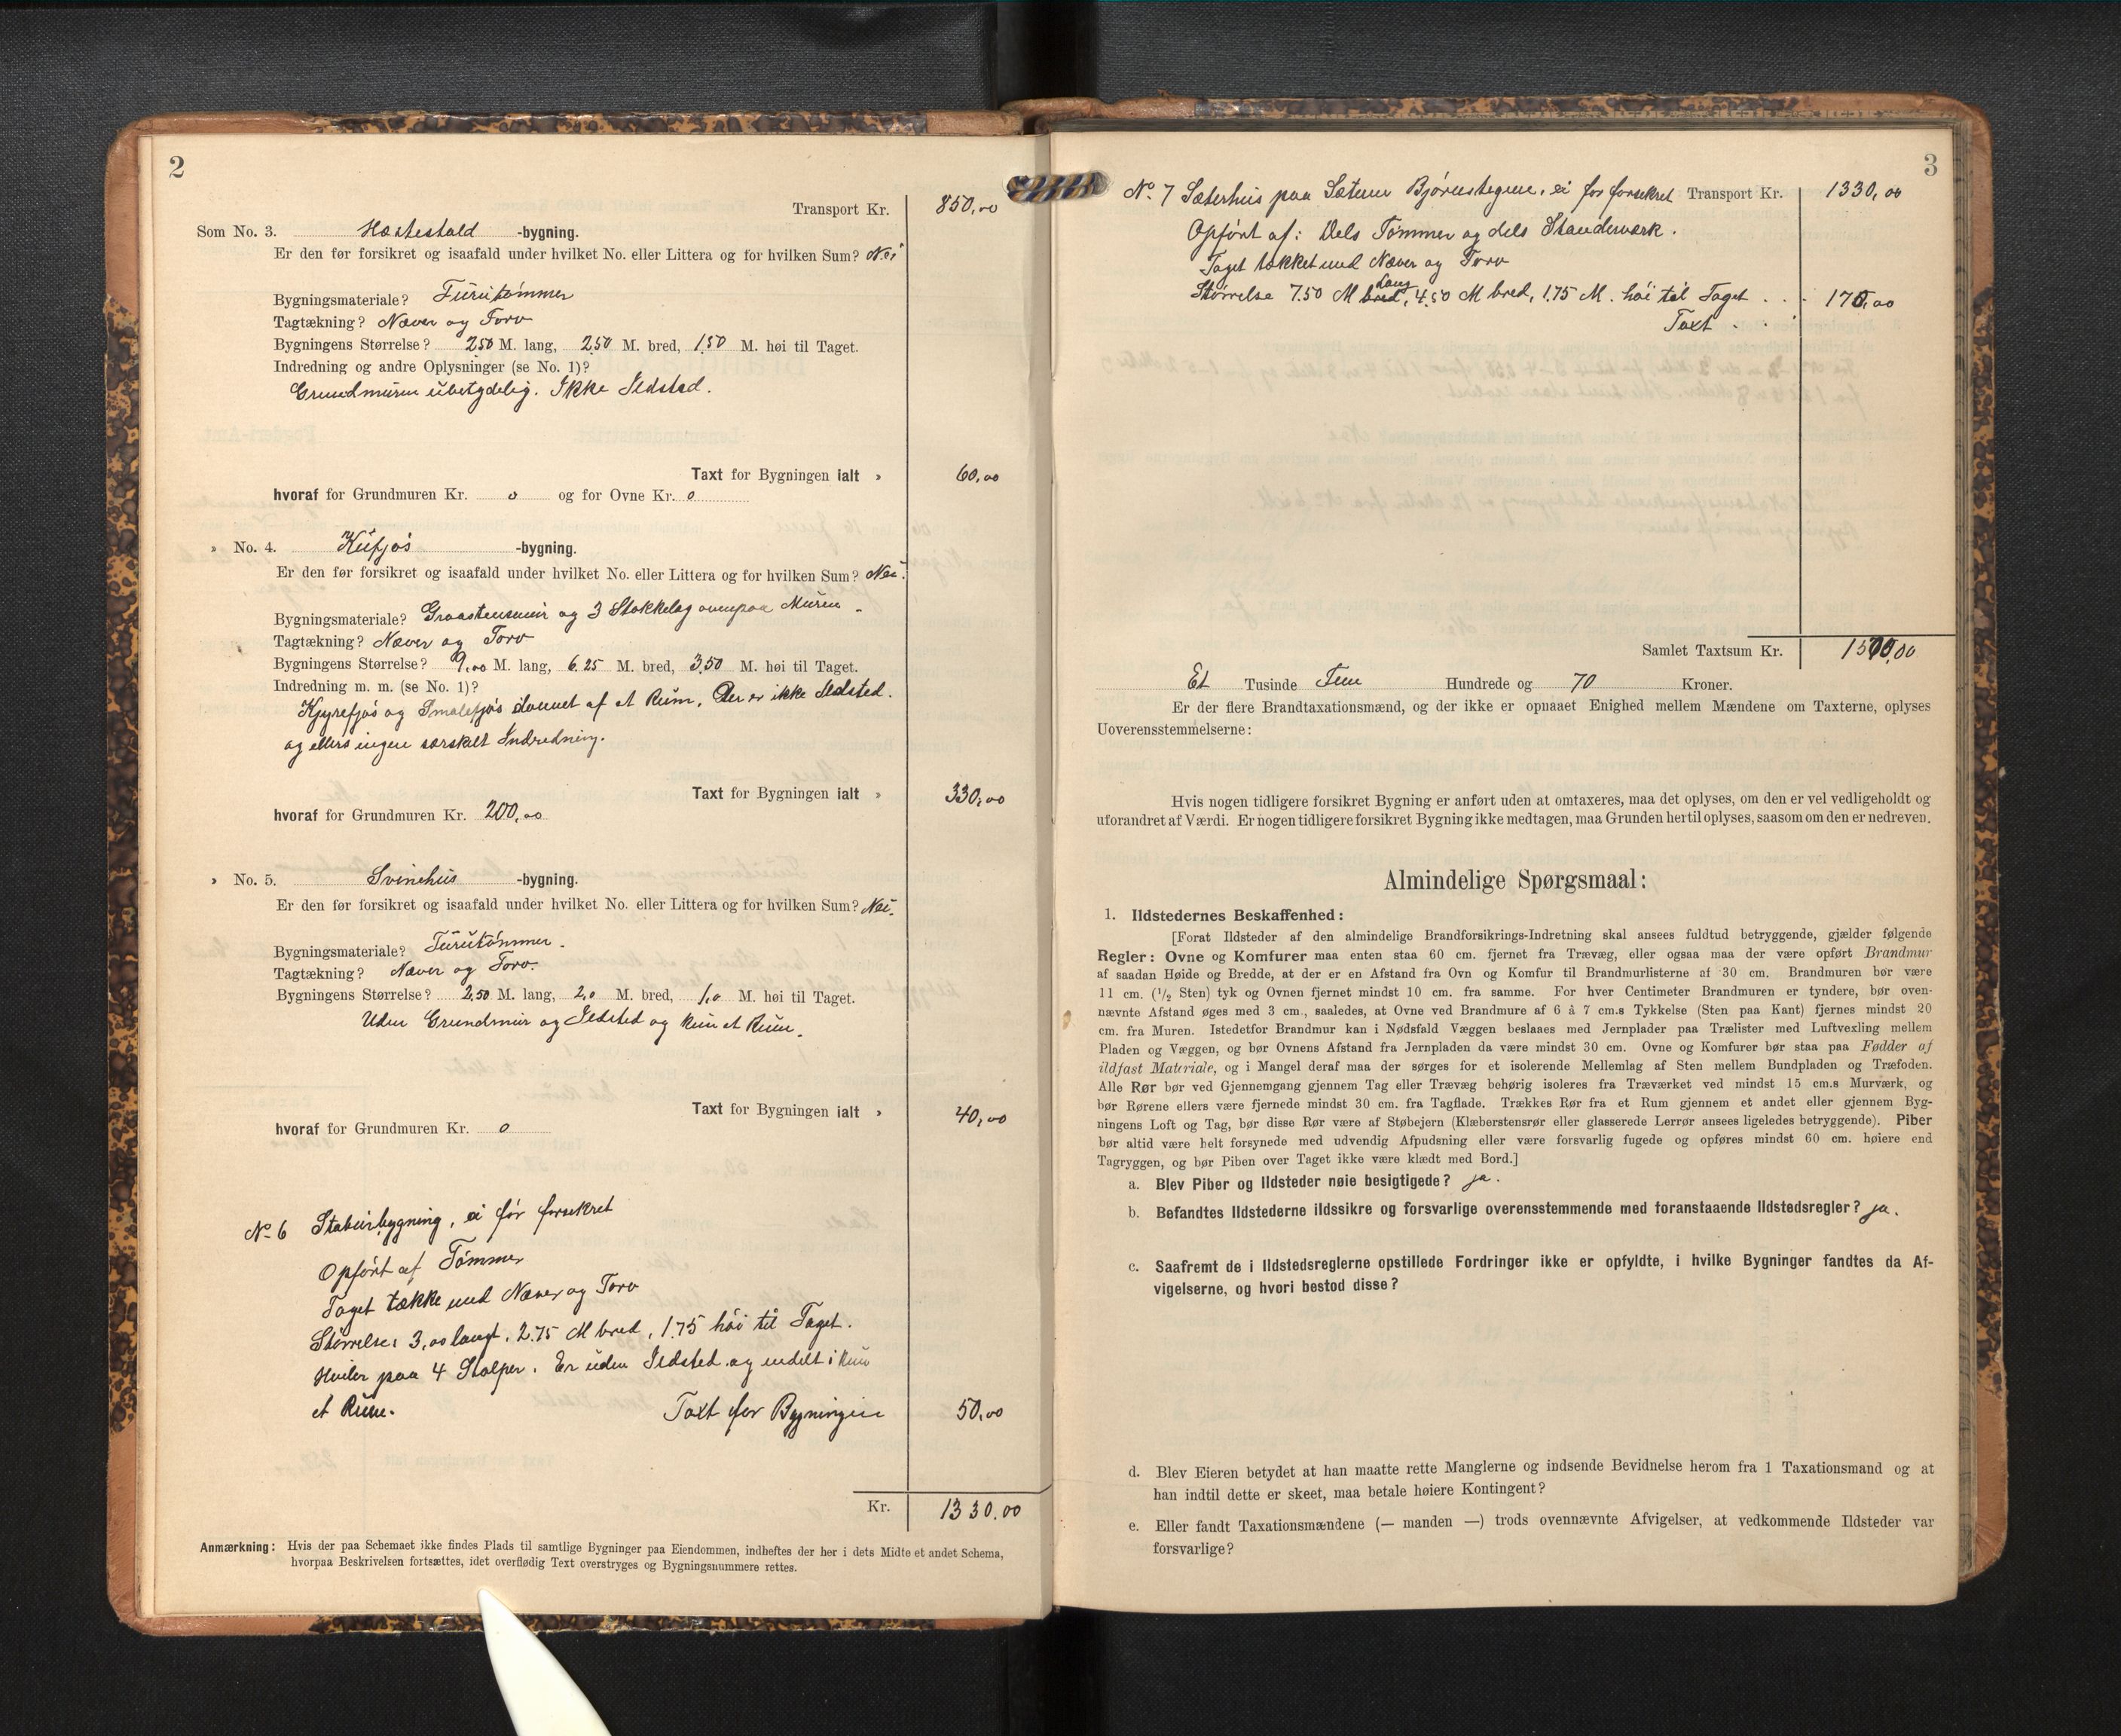 2
Transport Kr. 850,00
Som No. 3. Hestestald -bygning.
Er den før forsikret og isaafald under hvilket No. eller Littera og for hvilken Sum? Nei
Bygningsmateriale? Furutømmer
Tagtækning? Næver og Torv
Bygningens Størrelse? 2.50 M. lang, 2.50 M. bred, 1.50 M. høi til Taget.
Indredning og andre Oplysninger (se No. 1)?
Grundmuren ubetydelig. Ikke Ildsted.
Taxt for Bygningen ialt » 60,00
hvoraf for Grundmuren Kr. 0 og for Ovne Kr. 0
» No. 4. Kufjøs -bygning.
Er den før forsikret og isaafald under hvilket No. eller Littera og for hvilken Sum? Nei.
Bygningsmateriale? Graastensmur og 3 Stokkelag ovenpaa Muren.
Tagtækning? Næver og Torv
Bygningens Størrelse? 9,00 M. lang, 6.25 M. bred, 3.50 M. høi til Taget.
Indredning m. m. (se No. 1)?
Kjyrefjøs og Smalefjøs dannet af et Rum. Der er ikke Ildsted.
og ellers ingen særskilt Indredning.
Taxt for Bygningen ialt » 330,00
hvoraf for Grundmuren Kr. 200,00
» No. 5. Svinehus -bygning.
Er den før forsikret og isaafald under hvilket No. eller Littera og for hvilken Sum? Nei.
Bygningsmateriale? Furutømmer.
Tagtækning? Næver og Torv.
Bygningens Størrelse? 2.50 M. lang, 2,0 M. bred, 1,0 M. høi til Taget.
Uden Grundmur og Ildsted og kun et Rum.
Taxt for Bygningen ialt » 40,00
hvoraf for Grundmuren Kr. 0
No 6 Stabursbygning, ei før forsekret
Opført af Tømmer
Taget tække med Næver og Torv
Størrelse: 3,00 langt, 2.75 M bred, 1.75 høi til Taget.
Hviler paa 4 Stolper. Er uden Ildsted og indelt i kun
et Rum. Taxt for Bygningen 50,00
Kr. 1330.00
Anmærkning: Hvis der paa Schemaet ikke findes Plads til samtlige Bygninger paa Eiendommen, indheftes der her i dets Midte et andet Schema,
hvorpaa Beskrivelsen fortsættes, idet overflødig Text overstryges og Bygningsnummere rettes.
3
No. 7 Sæterhus paa Sæteren Bjørnstegene, ei før forsekret Transport Kr. 1330,00
Opført af: Dels Tømmer og dels Standerværk.
Taget tækket med Næver og Torv
Størrelse 7.50 M bred lang, 4.50 M bred, 1.75 M. høi til Taget . . . 170,00
Taxt . . .
Samlet Taxtsum Kr. 1570,00
Et Tusinde Fem Hundrede og 70 Kroner.
Er der flere Brandtaxationsmænd, og der ikke er opnaaet Enighed mellem Mændene om Taxterne, oplyses
Uoverensstemmelserne:
Hvis nogen tidligere forsikret Bygning er anført uden at omtaxeres, maa det oplyses, om den er vel vedligeholdt og
uforandret af Værdi. Er nogen tidligere forsikret Bygning ikke medtagen, maa Grunden hertil oplyses, saasom om den er nedreven.
Almindelige Spørgsmaal:
1. Ildstedernes Beskaffenhed:
[Forat Ildsteder af den almindelige Brandforsikrings-Indretning skal ansees fuldtud betryggende, gjælder følgende
Regler: Ovne og Komfurer maa enten staa 60 cm. fjernet fra Trævæg, eller ogsaa maa der være opført Brandmur
af saadan Høide og Bredde, at der er en Afstand fra Ovn og Komfur til Brandmurlisterne af 30 cm. Brandmuren bør være
11 cm. (1/2 Sten) tyk og Ovnen fjernet mindst 10 cm. fra samme. For hver Centimeter Brandmuren er tyndere, bør oven-
nævnte Afstand øges med 3 cm., saaledes, at Ovne ved Brandmure af 6 à 7 cm.s Tykkelse (Sten paa Kant) fjernes mindst 20
cm. fra Muren. Istedetfor Brandmur kan i Nødsfald Væggen beslaaes med Jernplader paa Trælister med Luftvexling mellem
Pladen og Væggen, og bør Ovnens Afstand fra Jernpladen da være mindst 30 cm. Ovne og Komfurer bør staa paa Fødder af
ildfast Materiale, og i Mangel deraf maa der sørges for et isolerende Mellemlag af Sten mellem Bundpladen og Træfoden.
Alle Rør bør ved Gjennemgang gjennem Tag eller Trævæg behørig isoleres fra Træværket ved mindst 15 cm.s Murværk, og
bør Rørene ellers være fjernede mindst 30 cm. fra Tagflade. Trækkes Rør fra et Rum gjennem et andet eller gjennem Byg-
ningens Loft og Tag, bør disse Rør være af Støbejern (Klæberstensrør eller glasserede Lerrør ansees ligeledes betryggende). Piber
bør altid være helt forsynede med udvendig Afpudsning eller være forsvarlig fugede og opføres mindst 60 cm. høiere end
Tagryggen, og bør Piben over Taget ikke være klædt med Bord.]
a. Blev Piber og Ildsteder nøie besigtigede? ja.
b. Befandtes Ildstederne ildssikre og forsvarlige overensstemmende med foranstaaende Ildstedsregler? ja.
c. Saafremt de i Ildstedsreglerne opstillede Fordringer ikke er opfyldte, i hvilke Bygninger fandtes da Af-
vigelserne, og hvori bestod disse?
d. Blev Eieren betydet at han maatte rette Manglerne og indsende Bevidnelse herom fra 1 Taxationsmand og at
han indtil dette er skeet, maa betale høiere Kontingent?
e. Eller fandt Taxationsmændene (— manden —) trods ovennævnte Afvigelser, at vedkommende Ildsteder var
forsvarlige?